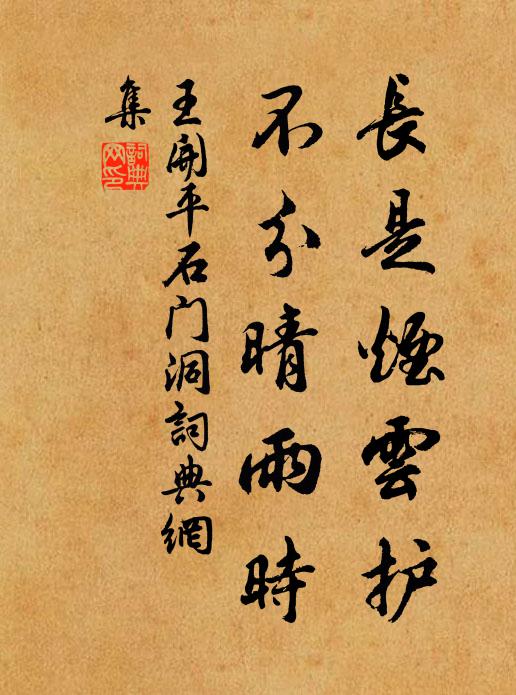 長是煙雲护
不分晴雨時
王開平石门洞詞典網
集
詞典网印